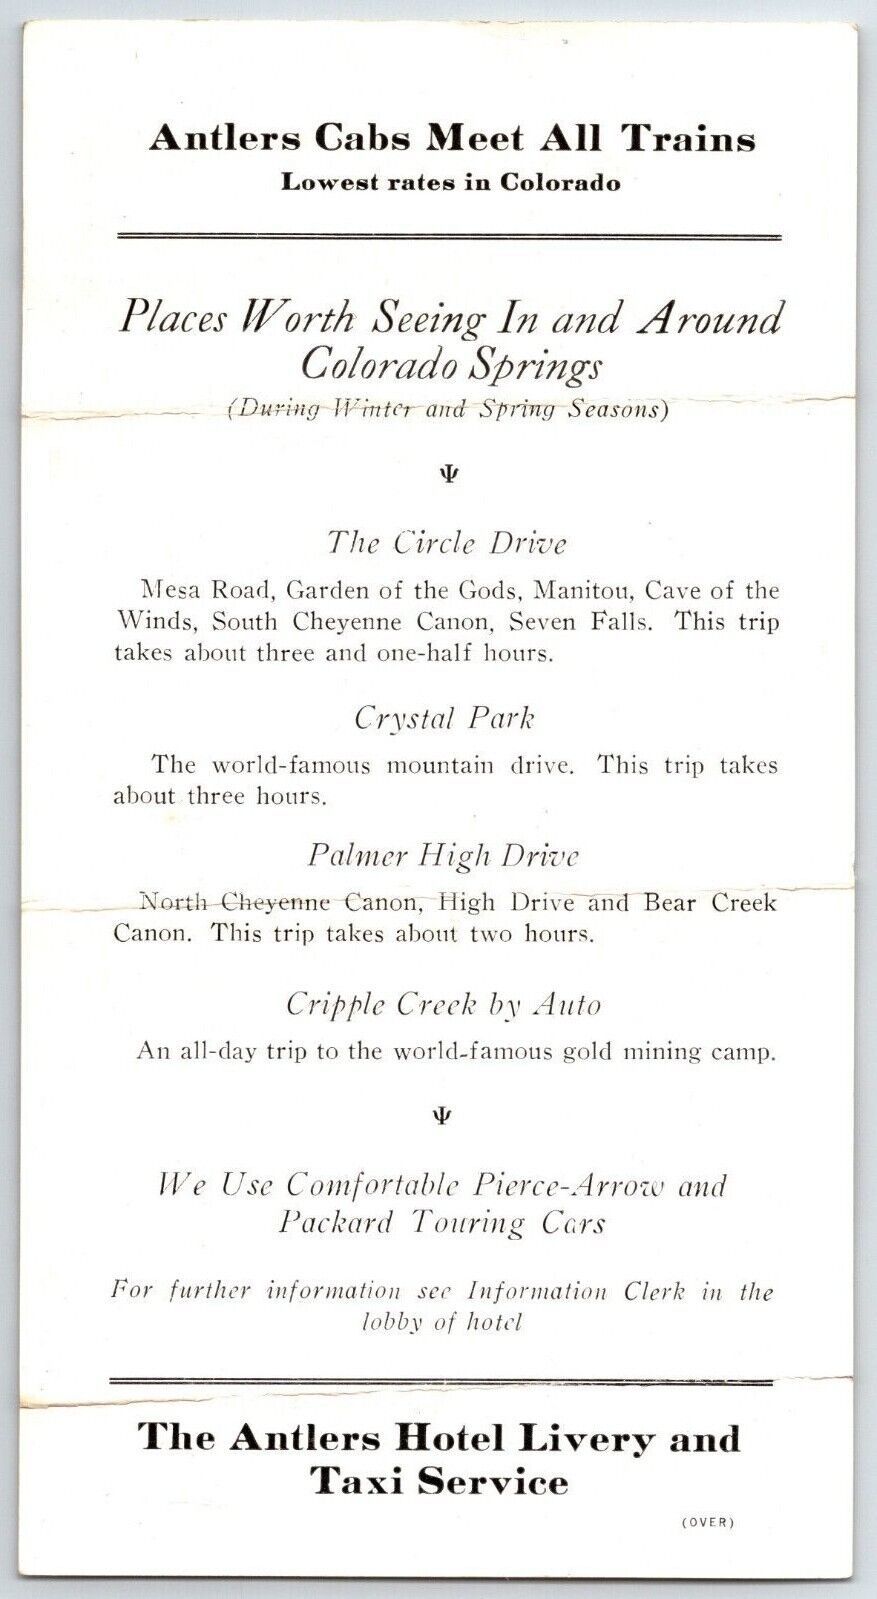 Antlers Cabs Meet All Trains
Lowest rates in Colorado
Places Worth Seeing In and Around
Colorado Springs
(During Winter and Spring Seasons)
Ψ
The Circle Drive
Mesa Road, Garden of the Gods, Manitou, Cave of the
Winds, South Cheyenne Canon, Seven Falls. This trip
takes about three and one-half hours.
Crystal Park
The world-famous mountain drive. This trip takes
about three hours.
Palmer High Drive
North Cheyenne Canon, High Drive and Bear Creek
Canon. This trip takes about two hours.
Cripple Creek by Auto
An all-day trip to the world-famous gold mining camp.
Ψ
We Use Comfortable Pierce-Arrow and
Packard Touring Cars
For further information see Information Clerk in the
lobby of hotel
The Antlers Hotel Livery and
Taxi Service
(OVER)